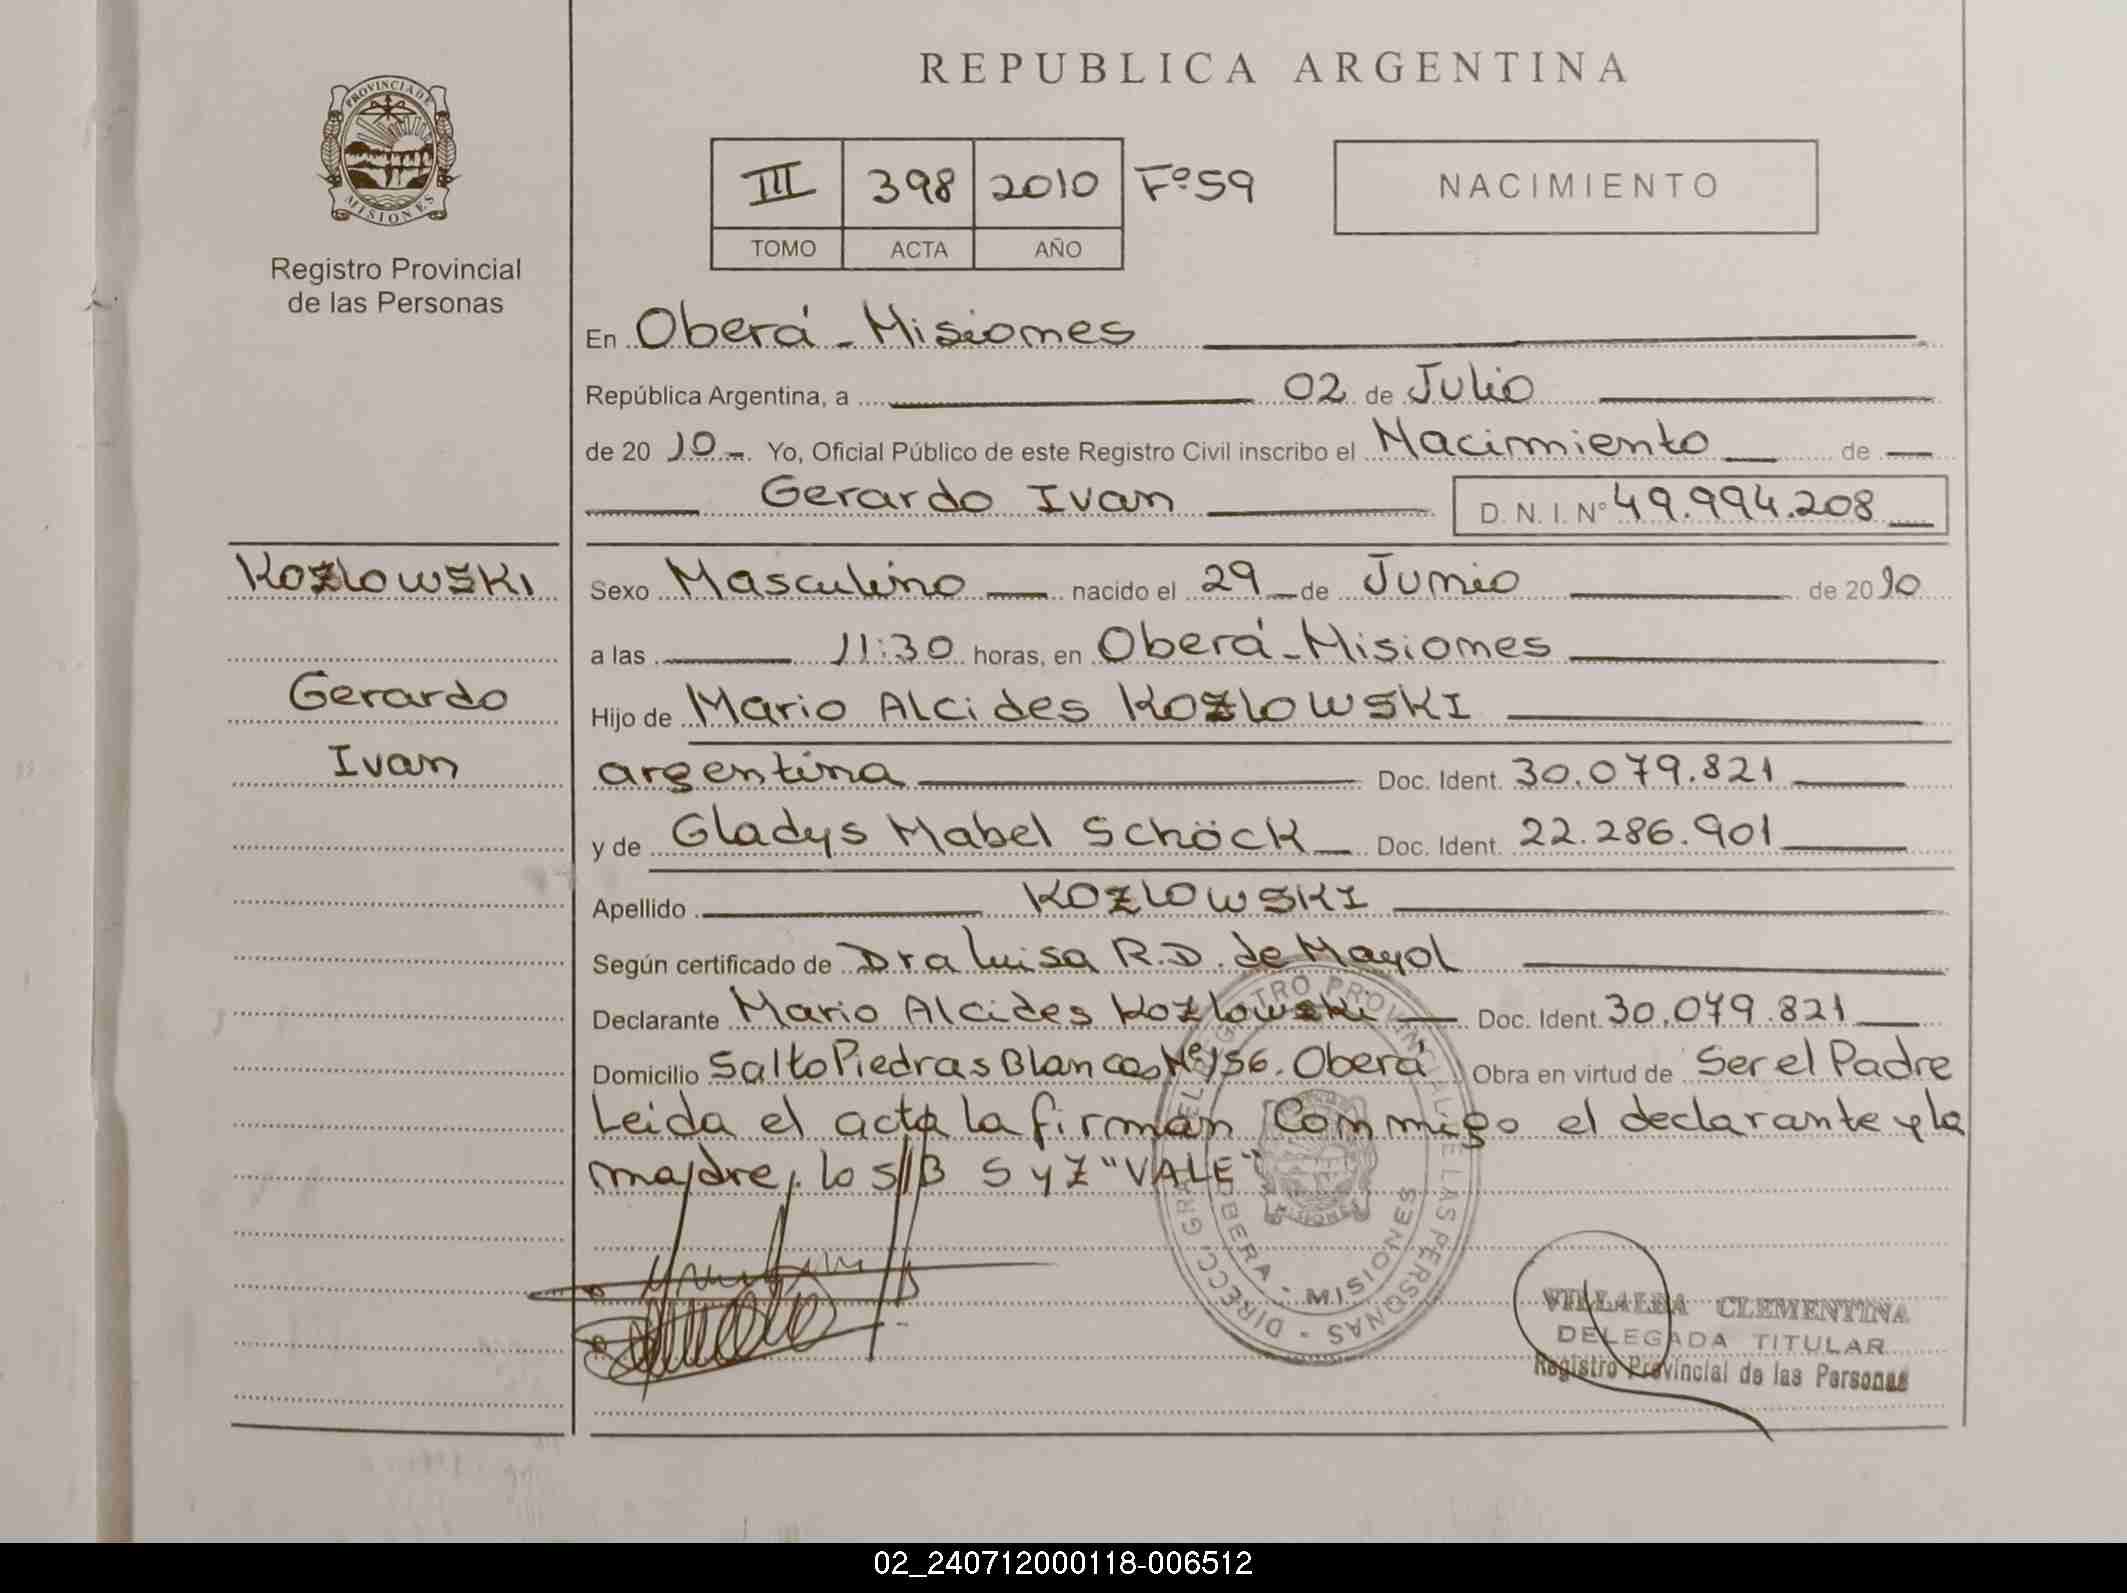 REPUBLICA ARGENTINA
PROVINCIA DE
MISIONES
Registro Provincial
de las Personas
III 398 2010 Fº59
TOMO ACTA AÑO
NACIMIENTO
En Oberá - Misiones
República Argentina, a 02 de Julio
de 2010 - Yo, Oficial Público de este Registro Civil inscribo el Nacimiento de
Gerardo Ivan D. N. I. Nº 49.994.208
KOZLOWSKI
Gerardo
Ivan
Sexo Masculino nacido el 29 de Junio de 2010
a las 11:30 horas, en Oberá - Misiones
Hijo de Mario Alcides KOZLOWSKI
argentina Doc. Ident. 30.079.821
y de Gladys Mabel Schöck Doc. Ident. 22.286.901
Apellido KOZLOWSKI
Según certificado de Dra Luisa R.D. de Mayol
Declarante Mario Alcides Kozlowski Doc. Ident. 30.079.821
Domicilio Salto Piedras Blancas Nº 156. Oberá Obra en virtud de Ser el Padre
Leida el acta la firman Conmigo el declarante y la
madre, lo s//B S y Z "VALE"
DIRECC GRAL DEL REGISTRO PROVINCIAL DE LAS PERSONAS
OBERA - MISIONES
MISIONES
VILLALBA CLEMENTINA
DELEGADA TITULAR
Registro Provincial de las Personas
02_240712000118-006512